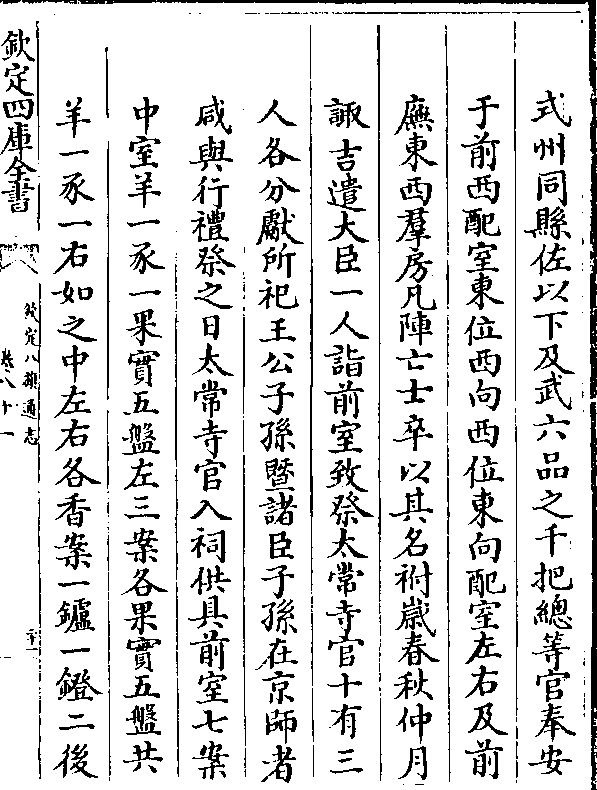 式州同縣佐以下及武六品之千把總等官奉安
于前西配室東位西向西位東向配室左右及前
廡東西羣房凡陣亡士卒以其名祔嵗春秋仲月
諏吉遣大臣一人詣前室致祭太常寺官十有三
人各分獻所祀王公子孫暨諸臣子孫在京師者
咸與行禮祭之日太常寺官入祠供具前室七案
中室羊一豕一果實五盤左三案各果實五盤共
羊一豕一右如之中左右各香案一鑪一鐙二後
欽定四庫全書
欽定八旗通志
卷八十一